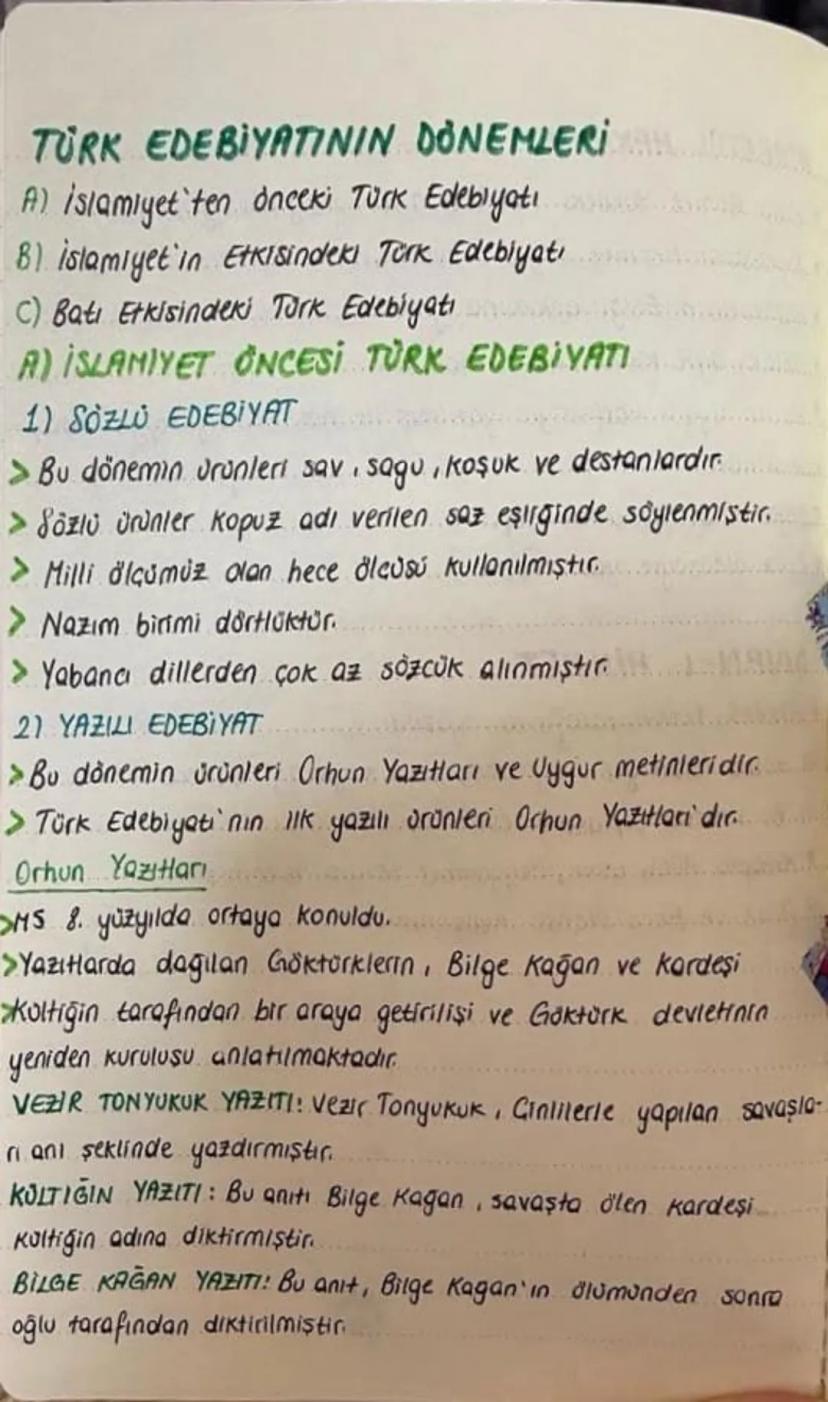 TÜRK EDEBİYATININ DÖNEMLERİ
A) İslamiyet'ten önceki Türk Edebiyatı
B) İslamiyet'in Etkisindeki Türk Edebiyatı
C) Batı Etkisindeki Türk Edebiyatı
A) İSLAMİYET ÖNCESİ TÜRK EDEBİYATI
1) SÖZLÜ EDEBİYAT
> Bu dönemin ürünleri sav, sagu, koşuk ve destanlardır.
> Sözlü ürünler kopuz adı verilen saz eşliğinde söylenmiştir.
> Milli ölçümüz olan hece ölçüsü kullanılmıştır.
> Nazım birimi dörtlüktür.
> Yabancı dillerden çok az sözcük alınmıştır.
2) YAZILI EDEBİYAT
> Bu dönemin ürünleri Orhun Yazıtları ve Uygur metinleridir.
> Türk Edebiyatı'nın ilk yazılı ürünleri Orhun Yazıtları'dır.
Orhun Yazıtları
> MS 8. yüzyılda ortaya konuldu.
> Yazıtlarda dağılan Göktürklerin, Bilge Kağan ve kardeşi
> Kültiğin tarafından bir araya getirilişi ve Göktürk devletinin
yeniden kuruluşu anlatılmaktadır.
VEZİR TONYUKUK YAZITI: Vezir Tonyukuk, Çinlilerle yapılan savaşla-
rı anı şeklinde yazdırmıştır.
KÜLTİĞİN YAZITI: Bu anıtı Bilge Kağan, savaşta ölen kardeşi
Kültiğin adına diktirmiştir.
BİLGE KAĞAN YAZITI: Bu anıt, Bilge Kagan'ın ölümünden sonra
oğlu tarafından diktirilmiştir.